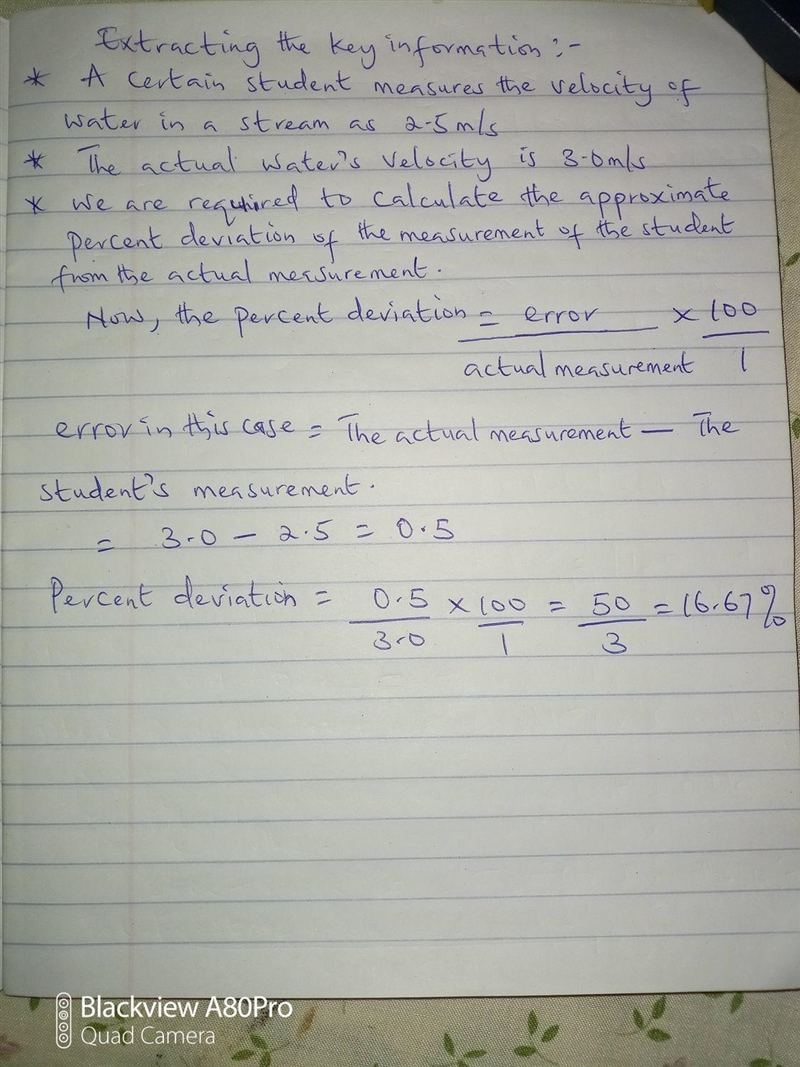 Extracting the key information :-
* A certain student measures the velocity of
water in a stream as 2.5m/s
* The actual water's velocity is 3.0m/s
* We are required to calculate the approximate
percent deviation of the measurement of the student
from the actual measurement.
Now, the percent deviation = error/actual measurement × 100/1
error in this case = The actual measurement — The
student's measurement.
= 3.0 — 2.5 = 0.5
Percent deviation = 0.5/3.0 × 100/1 = 50/3 = 16.67%
Blackview A80Pro
Quad Camera